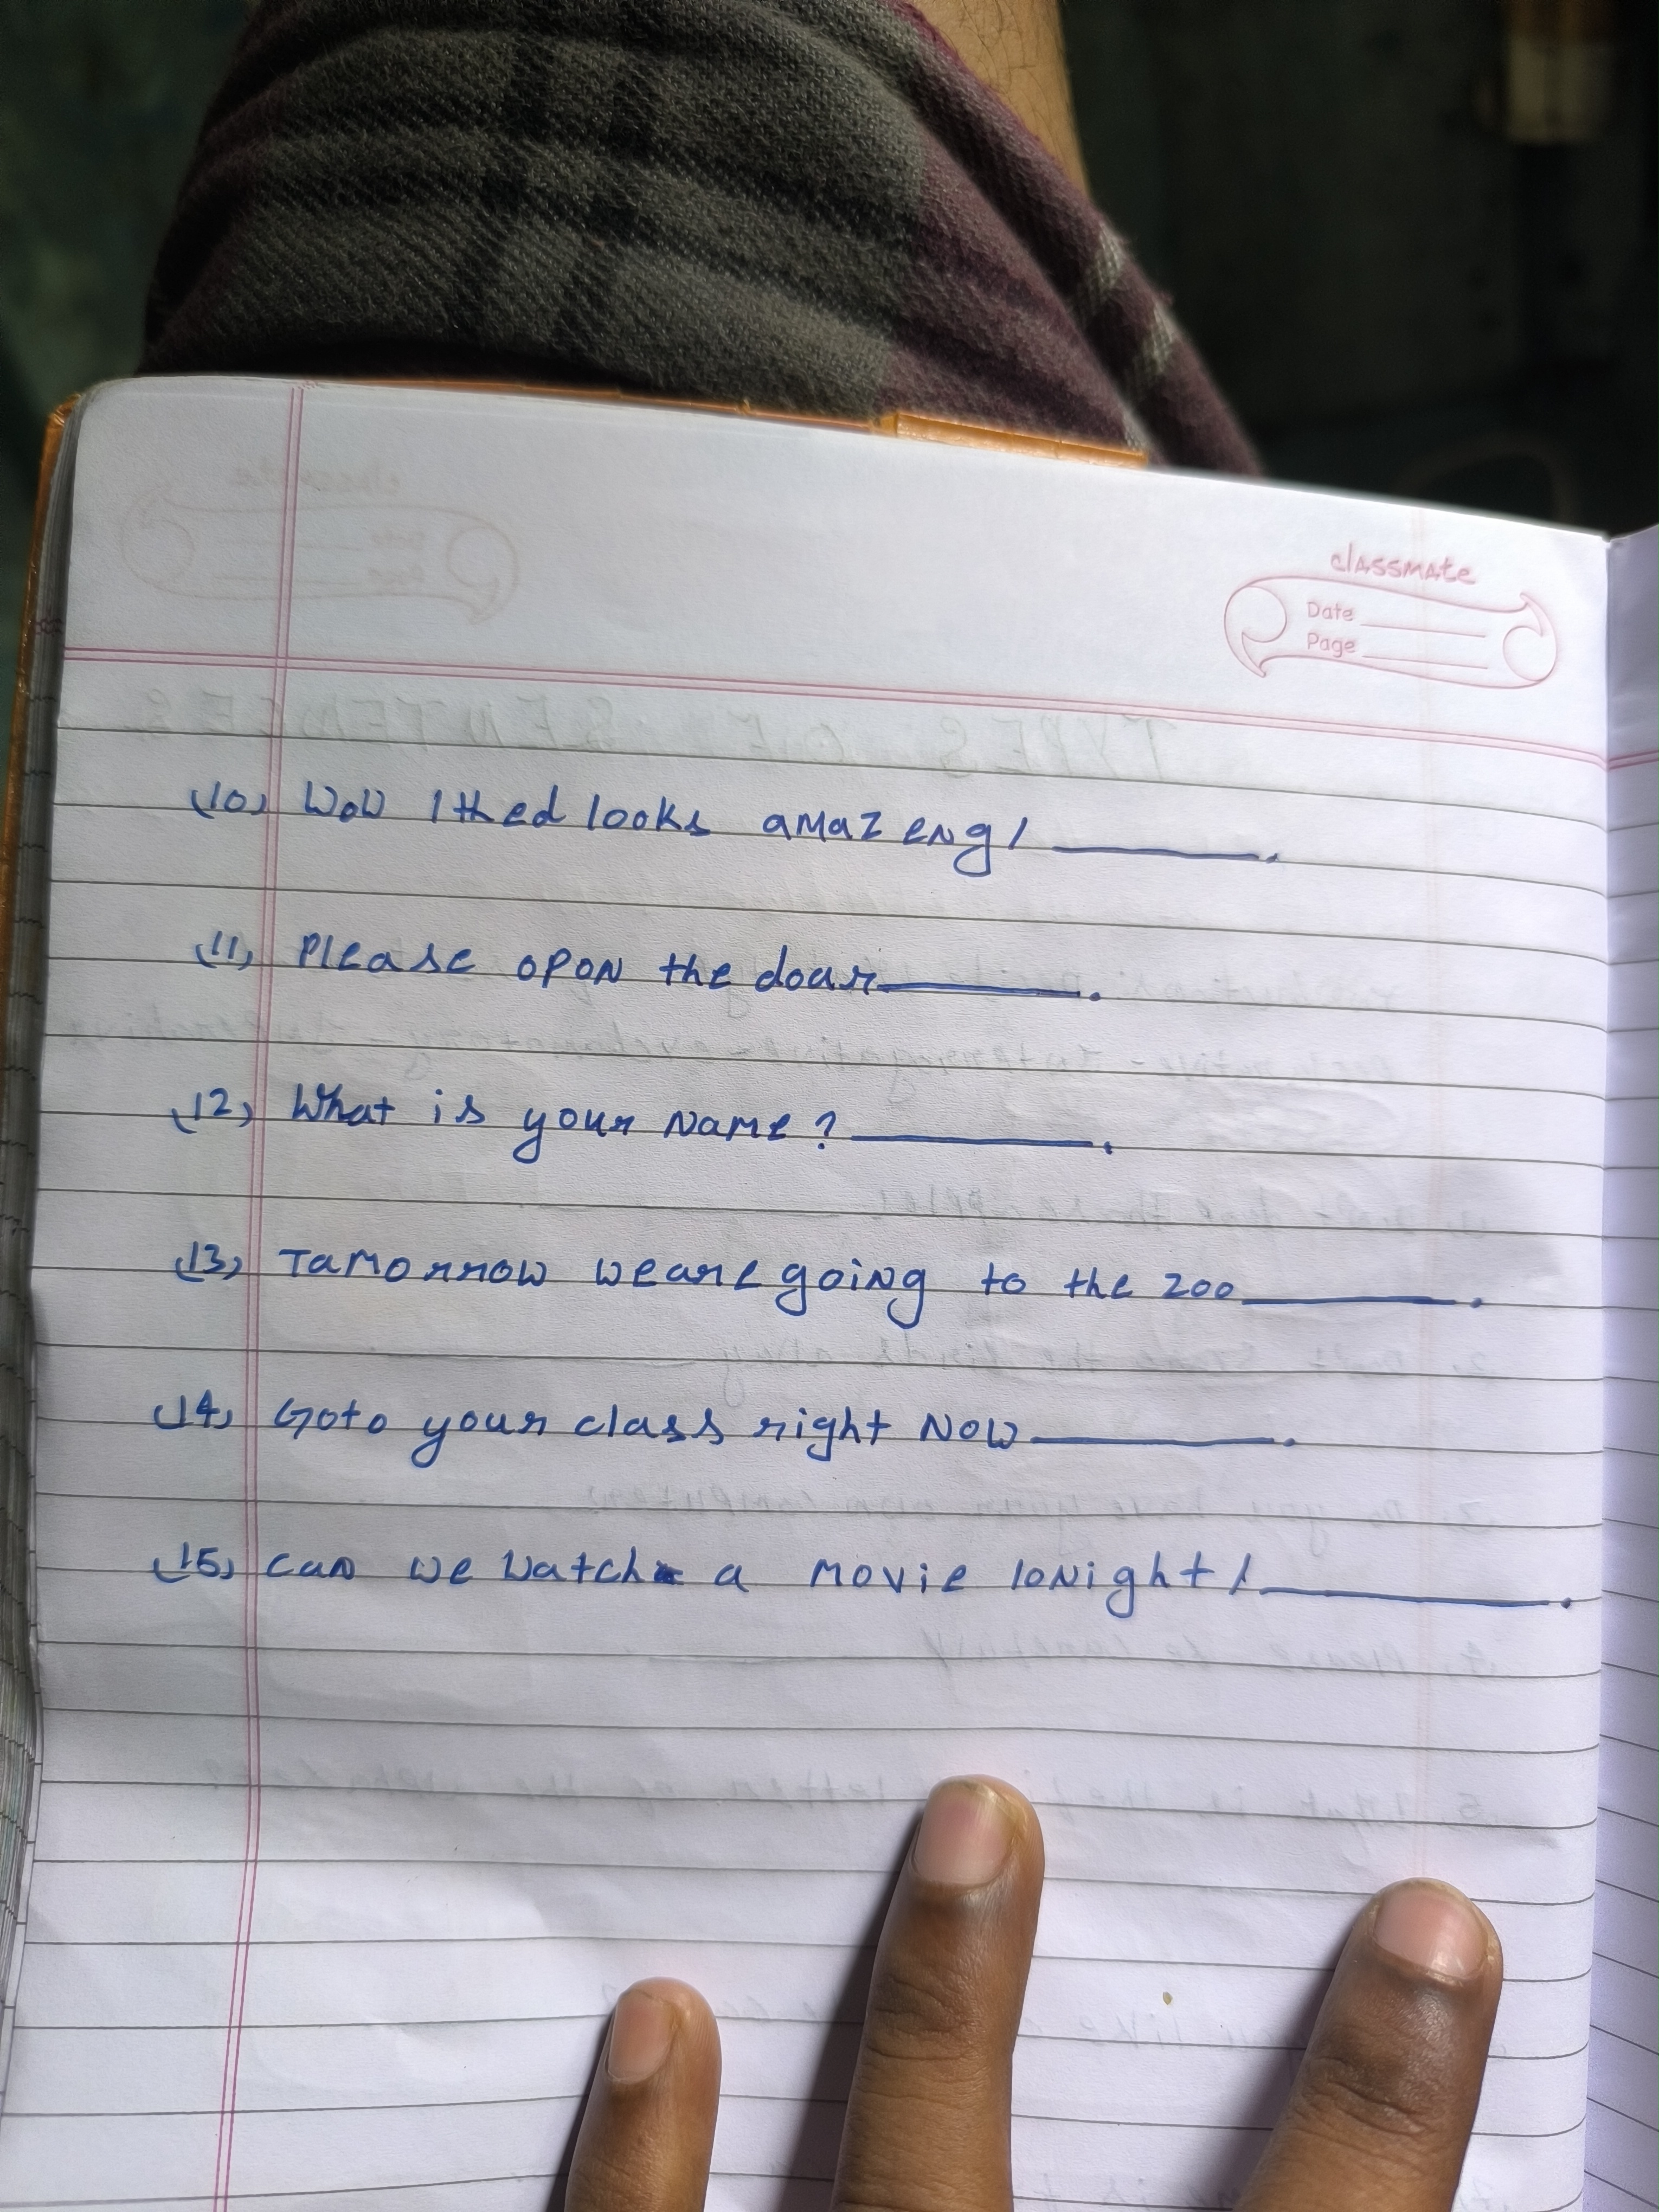 classmate
Date
Page
10) Wow ! thed looks amazeng !
11) Please opon the doar
12) What is your Name ?
13) Tamorrow we are going to the zoo
14) Go to your class right Now
15) can we watch a movie tonight !